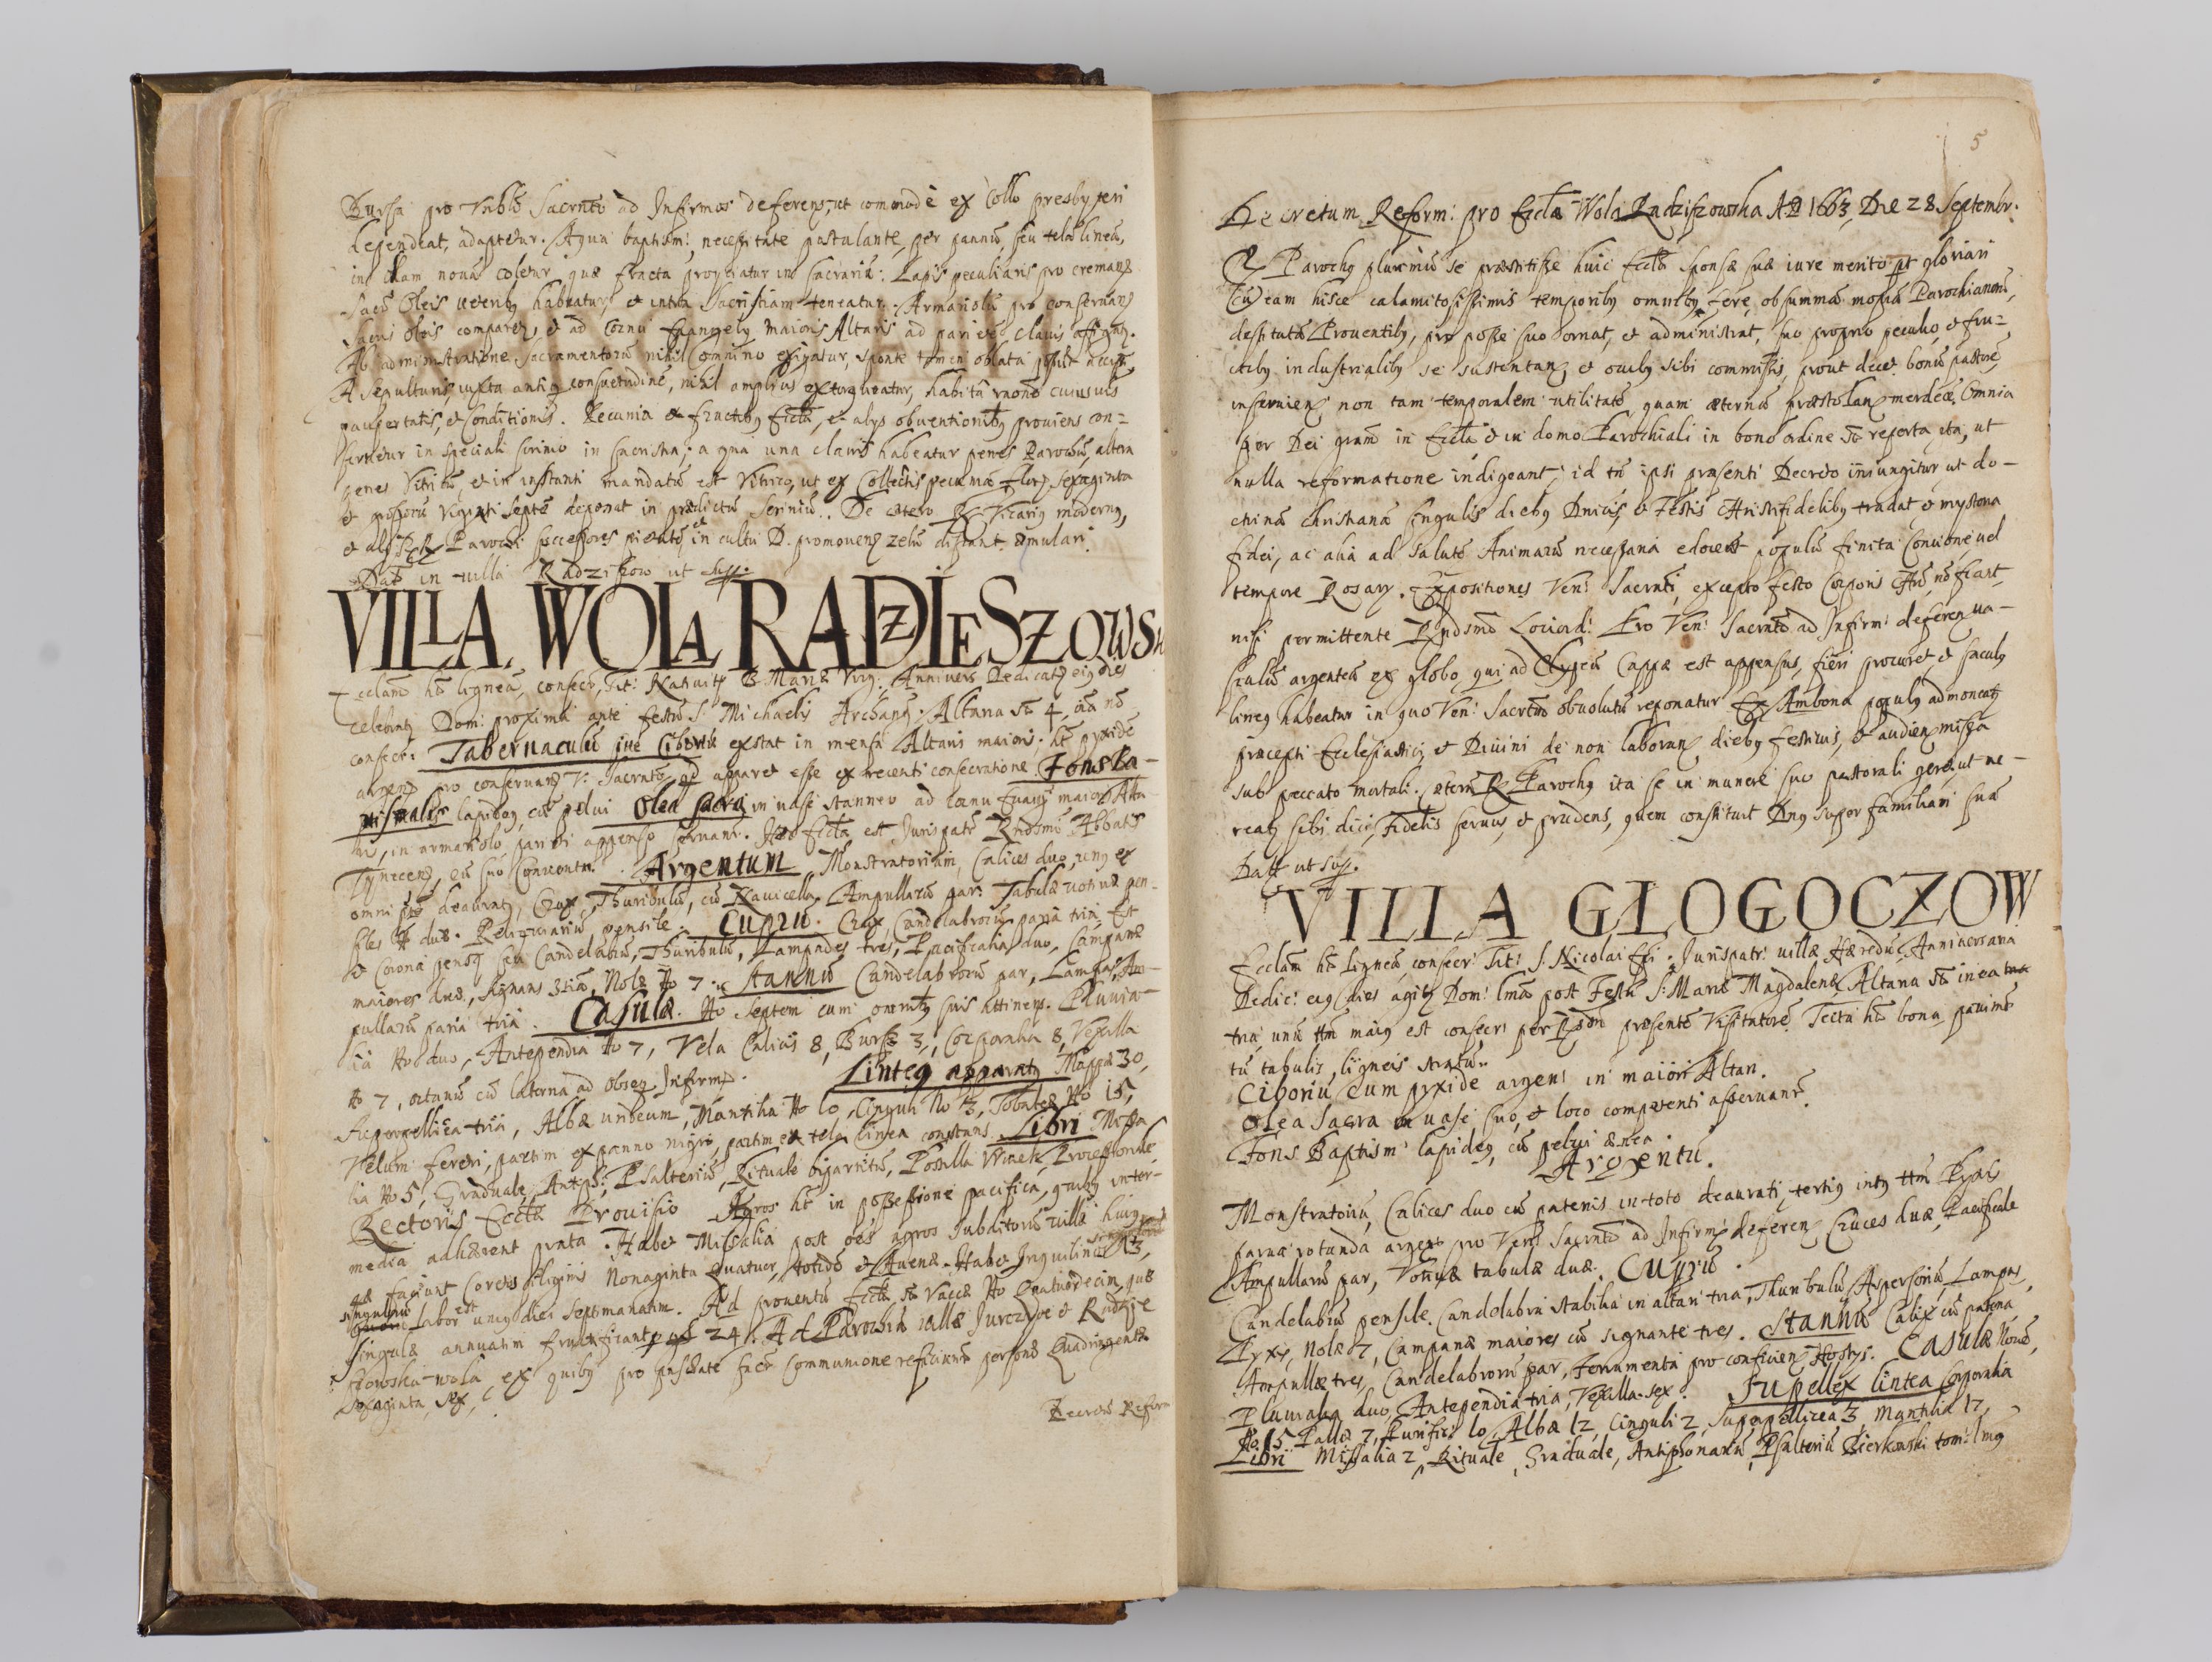 Bursa pro Vnblo Sacrnto ad Infirmos deferens, ut commodè ex Collo presbyteri
dependeat, adaptetur. Aqua baptism: necessitate postulante, per pannū, seu telā lineā,
in illam nouā coletur, quæ fracta progeratur in sacrariū. Lapis peculiaris pro cremanz
Sacris Oleis ueteribz habeatur, et intra Sacristiam teneatur. Armariolū pro conseruanz
Sacris Oleis comparez, et ad Cornu Euangely Maioris Altaris ad pariete clauis affigatz.
Ab administratione Sacramentorū nihil omnino exigatur, sponte tamen oblata possit decip.
A sepulturis, iuxta antiq consuetudinē, nihil amplius extorqueatur, habitâ raone cuiusuis
paupertatis, et Conditionis. Pecunia ex fructibz Ecclæ, et alys obuentionibz prouiens con=
seruetur in speciali scrinio in sacristia, a qua una clauis habeatur penes Parochū, altera
penes Vitricū, et in instanti mandatū est Vitrico, ut ex Collectis pecuniâ Flor: sexaginta
et grossorū viginti septē deponat in prædictū Scriniū. De cætero R. Vicariz modernz,
et alij R.R. Parochi successores pietatē et in cultu D. promouenz zelū dijcant æmulari.
Dat in villa Radzisow ut Supp.
VILLA. WOLA RADZIESZOWSK
Ecclām ht ligneā, consecr, Tit: Natiuits B. Mariæ Virg: Anniuers Dedicats eiz dies
celebratz Dom: proxima ante festū S. Michaelis Archang. Altaria st 4, oia nō
consecr: Tabernaculū siue Ciboriū exstat in mensa Altaris maioris. ht pyxidē
argenz pro conseruanz V. Sacrnto, qd apparet esse ex recenti consecratione. Fons Ba-
ptismalis lapidez, cū pelui Olea sacra in uase stanneo ad cornu Euang maioris Alta
ris, in armariolo parieti appenso seruantr. Hæc Eccla est Jurispatr Rndsmi Abbatis
Tynecenz, cū suo Conuentu. Argentum Monstratorium, Calices duo, unz ex
omni pte deauratz, Crux, Thuribulū, cū Nauicella, Ampullarū par: Tabulæ uotiuæ pen-
siles No duæ. Reliquiariū, pensile. Cuprū. Crux, Candelabrorū paria tria, Est
et Corona pensz seu Candelabrū, Thuribulū, Lampades tres, Pacificalia duo, Campanæ
maiores duæ, signans 3tia, Nolæ No 7. Stannū Candelabrorū par, Lampas, Am-
pullarū paria tria. Casulæ. No Septem cum omnibz suis attinenz. Pluuia-
lia No duo, Antependia No 7, Vela Calicis 8, Bursæ 3, Corporalia 8, Vexilla
No 7, octauū cū laterna ad obseq Infirmz. Linteq apparatz Mappæ 30,
Superpellicea tria, Albæ undecum, Mantilia No 10, Cinguli No 3, Tobaleæ No 15,
Velum feretri, partim ex panno nigro, partim ex tela linea constans. Libri Missa
lia No 5, Graduale, Antiph:, Psalteriū, Rituale bipartitū, Postilla Wuiek, Processionale,
Rectoris Ecclæ Prouisio Agros ht in possessione pacifica, quibz inter-
media adhærent prata. Habet Missalia post oēs agros Subditorū uillæ huiz
quæ faciunt Coretos siliginis Nonaginta Quatuor, totidē et Auenæ. Habet Inquilinos No 3,
singulorū labor est unizz diei Septimanatim. Ad prouentū Ecclæ st vaccæ No Quatuordecim, quæ
singulæ annuatim fructificant p gr 24. Ad Parochiā uillæ Jurczyce et Radzie
szowska wola, ex quibz pro paschate sacr Communione reficiuntr personæ Quadringentæ
Sexaginta, sex,
Decretū Reform
5
Decretum Reform: pro Eccla Wola Radziszowska A.D 1663, Die 28 Septembr.
R. Parochz plurimū se præstitisse huic Ecclæ sponsæ suæ iure merito pt gloriari
Cū eam hisce calamitosissimis temporibz omnibz ferè, ob summā inopiā Parochianorū,
destitutā Prouentibz, pro posse suo ornat, et administrat, suo proprio peculio, et fru=
ctibz industrialibz se sustentanz et ouibz sibi commissis, prout decet bonū pastorē,
inseruienz non tam temporalem utilitatē, quam æternā præstolanz mercedē, Omnia
per Dei gratiā in Eccla et in domo Parochiali in bono ordine st reperta, ita, ut
nulla reformatione indigeant, id tn ipsi præsenti Decreto iniungitur, ut do-
ctrinā christianā singulis diebz Dnicis, et Festis Christifidelibz tradat, et mysteria
fidei, ac alia ad salutē Animarū necessaria edoceat populū finita Concione, uel
tempore Rosary. Expositiones Ven: Sacrnti, excepto festo Corporis Chri, nō fiant,
nisi permittente Rndsmo Lociord: Pro Ven: Sacrnto ad Infirm: deferen ua-
sculū argenteū ex globo, qui ad Clypeū Cappæ est appensus, fieri procuret et saculz
linez habeatur in quo Ven: Sacrtum obuolutū reponatur Ex Ambona populz admoneatz
præcepti Ecclesiastici, et Diuini de non laboranz diebz festiuis, et audien missa
sub peccato mortali. Cæterū R. Parochz ita se in munere suo pastorali geret, ut me-
reatz sibi dici, Fidelis seruus, et prudens, quem constituit Dnz super familiam suā
Datz ut supp.
VILLA GLOGOCZOW
Ecclām ht Ligneā, consecr: Tit: S. Nicolai Epi. Jurispatr: uillæ Hæredū, Anniuersaria
Dedic: eiz dies agitz Dom: Ima post Festū S. Mariæ Magdalenæ, Altaria st in ea
tria, unū ttm maiz est consecr: per Rndm præsentē Visitatorē, Tecta ht bona, pauimē
tū tabulis ligneis stratū.
Ciboriū Cum pyxide argen: in maiori Altari.
Olea Sacra in uase suo, et loco competenti asseruantr.
Fons Baptism: lapidez, cū pelui ænea.
Argentū.
Monstratoriū, Calices duo cū patenis in toto deaurati, tertiz intz ttm Pyxis
parua rotunda argen pro Ven: Sacrnto ad Infirm: deferenz Cruces duæ, Pacificale
Ampullarū par, Votiuæ tabulæ duæ. Cuprū.
Candelabrū pensile. Candelabra stabilia in altari tria, Thuribulū, Aspersoriū, Lampas,
Pyxis, Nolæ 7, Campanæ maiores cū signante tres. Stannū Calix cū patena
Ampullæ tres, Candelabrorū par, Ferramenta pro conficienz Hostys. Casulæ Nouē,
Pluuialia duo, Antependia tria, Vexilla sex. Supellex lintea Corporalia
No 15 Pallæ 7, Purific: 10, Albæ 12, Cinguli 2, Superpellicea 3, Mantilia 17,
Libri Missalia 2, Rituale, Graduale, Antiphonariū, Psalteriū Bierkowski tom: Imz